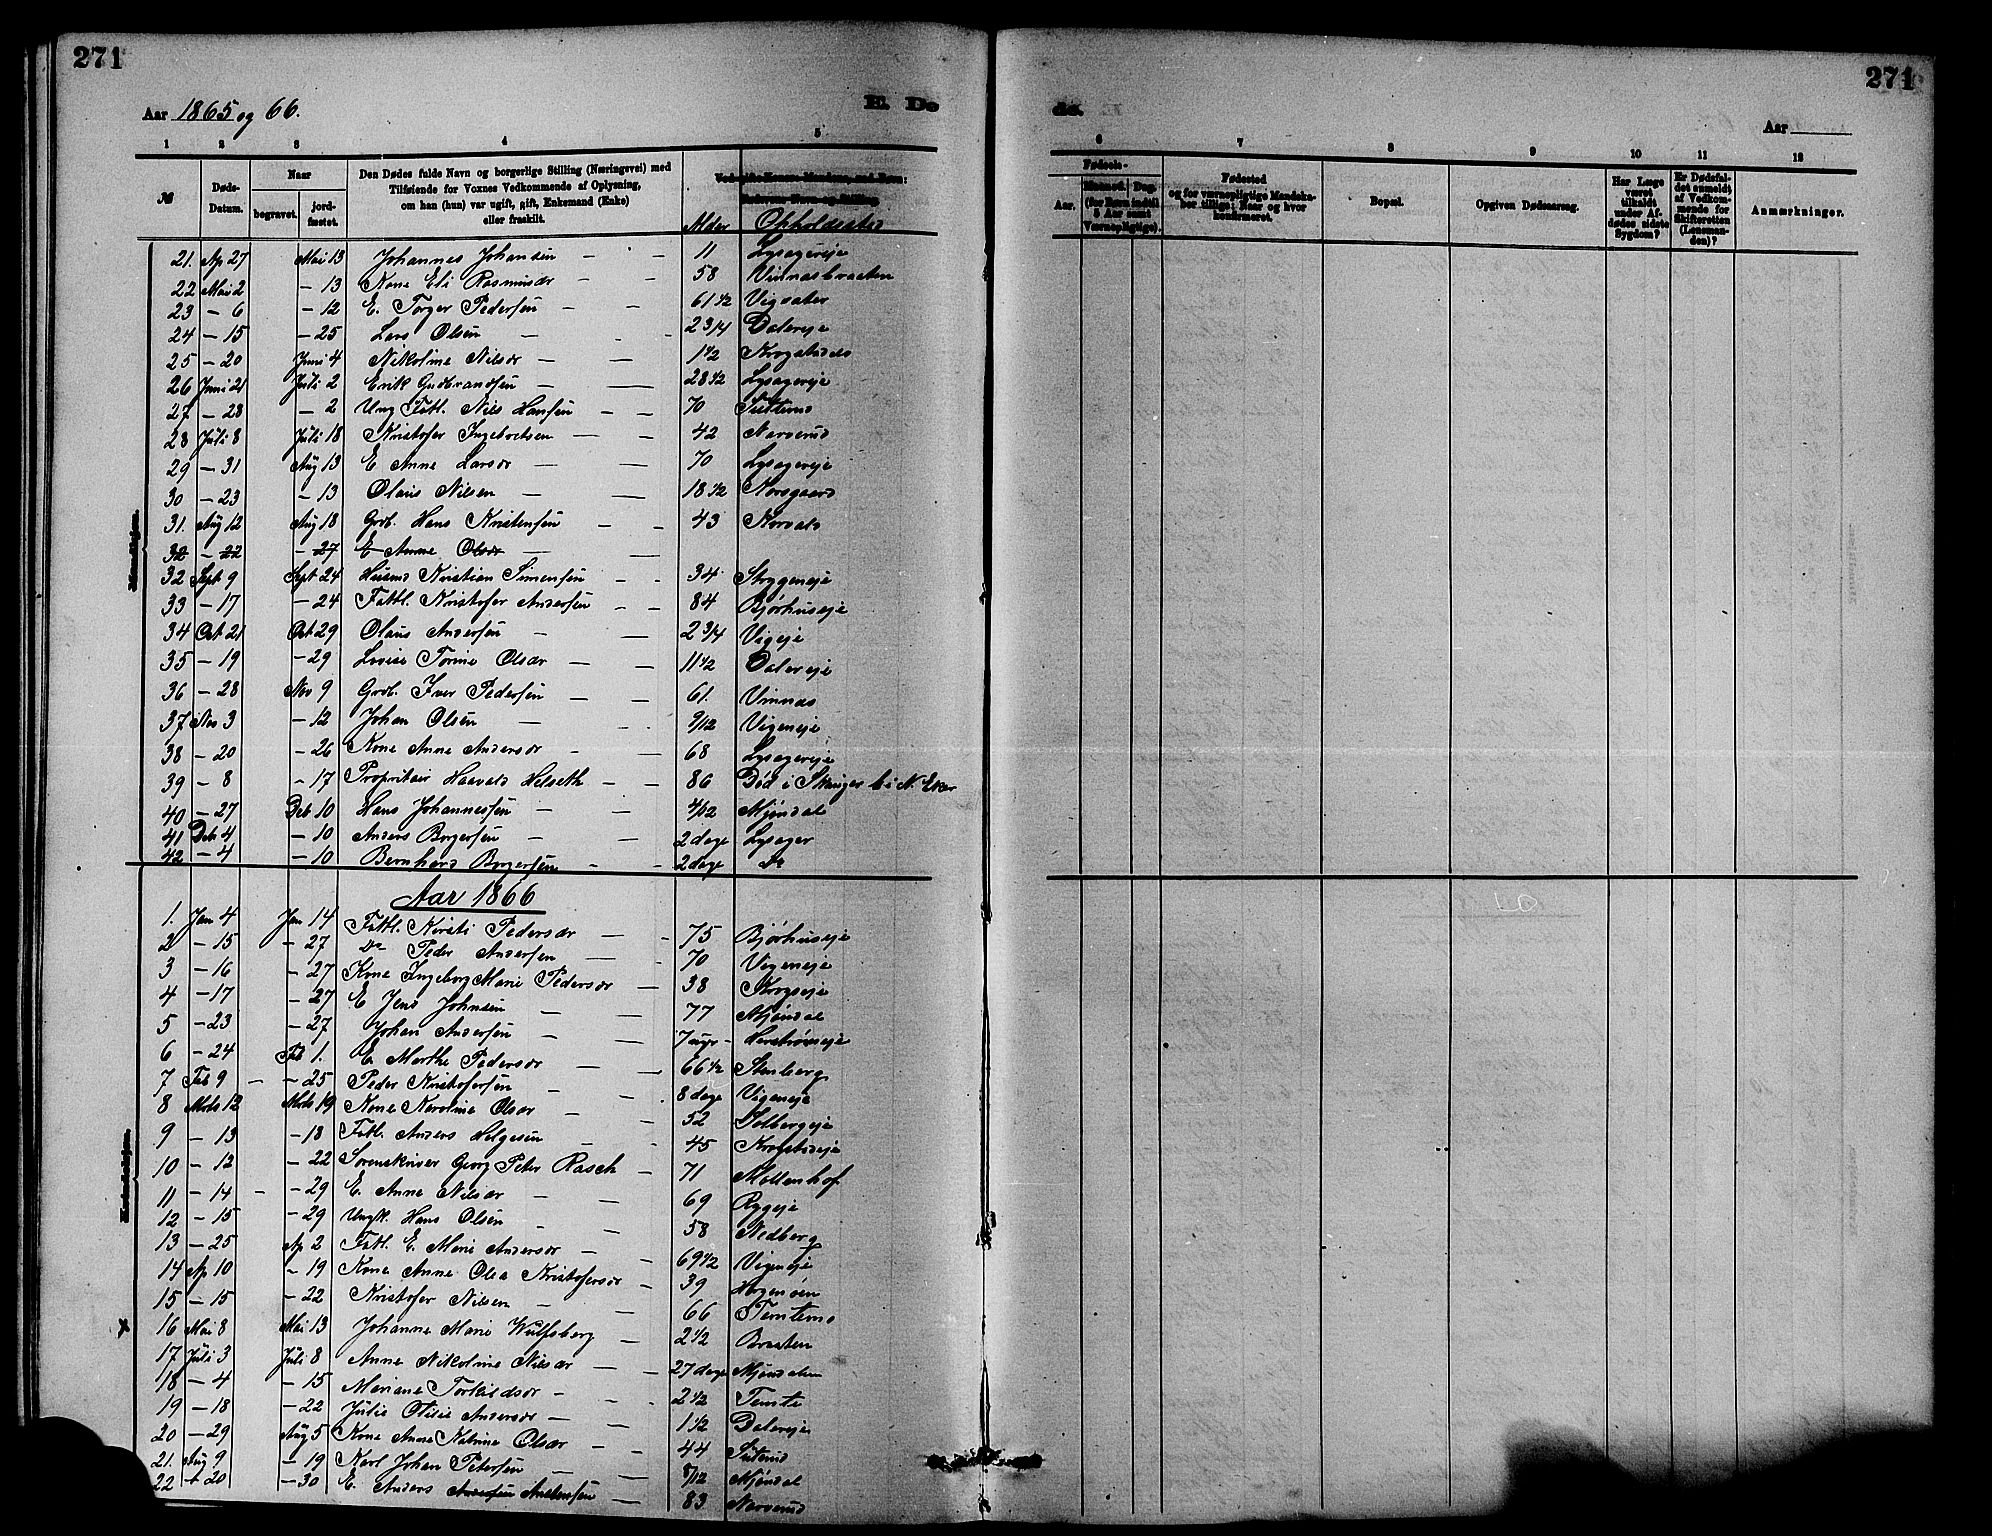 271
Aar 1865 og 66.
E. Dø
1 2 3 4 5
№
Døds-Datum.
Naar
begravet.
jord-fæstet.
Den Dødes fulde Navn og borgerlige Stilling (Næringsvei) med
Tilføiende for Voxnes Vedkommende af Oplysning,
om han (hun) var ugift, gift, Enkemand (Enke)
eller fraskilt.
Alder Opholdssted
21. Ap 27 Mai 13 Johannes Johansen — — 11 Lysagereje
22 Mai 2 — 13 Kone Eli Rasmusdr — — 58 Vinnasbraaten
23 — 6 — 12 E. Torger Pedersen — — 61 1/2 Vigsater
24 — 15 — 25 Lars Olsen — 2 3/4 Dalereje
25 — 20 Juni 4 Nikoline Nilsdr — — 1 1/2 Krogstadeie
26 Juni 21 Juli 2 Erik Gudbrandsen — — 28 1/2 Lysagereje
27 — 28 — 2 Ung Fattl. Nils Hansen — — 70
28 Juli 8 Juli 18 Kristofer Ingebretsen — — 42 Narverud
29 — 31 Aug 13 E Anne Larsdr — — 70 Lysagereje
30 — 23 — 13 Olaus Nilsen — — 18 1/2 Korsgaard
31. Aug 12 Aug 18 Grdb. Hans Kristensen — — 43
32 — 22 — 27 E Anne Olsdr —
32 Sept 9 Sept 24 Husmd Kristian Simensen — — 34 Stryggeneje
33 — 17 — 24 Fattl. Kristofer Andersen — — 84 Bjørhuseje
34 Oct 21 Oct 29 Olaus Andersen — — 2 3/4 Vigeje
35 — 19 — 29 Lovise Torine Olsdr — — 11 1/2 Dalereje
36 — 28 Nov 9 Grdb. Iver Pedersen — — 61. Vinnas
37 Nov 3 — 12 Johan Olsen — 9/12 Vigeneje
38 — 20 — 26 Kone Anne Andersdr — — 68 Lysagereje
39 — 8 — 17 Propritair Haavald Helseth — — 86 Død i Skauger b i N. Eker
40 — 27 Deb 10 Hans Johannessen — — 4/12 Mjøndal
41 Deb 4 — 10 Anders Borgersen — — 2 dage Lysager
42 — 4 — 10 Bernhard Borgersen — — 2 dage Do
Aar 1866
1. Jan 4 Jan 14 Fattl. Kirsti Pedersdr — — 75 Bjørhuseje
2 — 15 — 27 Do Peder Andersen — 70 Vigeneje
3 — 16 — 27 Kone Ingeborg Marie Pedersdr — 38 Krogseje
4 — 17 — 27 E Jens Johnsen — — 77 Mjøndal
5 — 23 — 27 Johan Andersen — — 7 uger — Herstrømseje
6 — 24 Feb 1. E. Marthe Pedersdr — — 66 1/2 Stenberg
7 Feb 9 — — 25 Peder Kristofersen — — 8 dage Vigeneje
8 Mrts 12 Mrts 19 Kone Karoline Olsdr — — 52 Solbergeje
9 — 13 — 18 Fattl. Anders Helgesen — — 45 Krogstadeje
10 — 12 — 22 Sorenskriver Georg Peter Rasch — 71 Møllenhof
11 — 14 — — 29 E. Anne Nilsdr — — 69 Rygeje
12 — 15 — 29 Ungk. Hans Olsen — — 58 Nedberg
13 — 25 Ap 2 Fattl. E. Marie Andersdr — — 69 1/2 Vigeneje
14 Ap 10 — 19 Kone Anne Olea Kristofersdr — 39 Hagenøen
15 — 15 — 22 Kristofer Nilsen — — 66
16 Mai 8 Mai 13 Johanne Marie Wulfsberg — 2 1/2 Braaten
17 Juli 3 Juli 8 Anne Nikoline Nilsdr — — 27 dage Mjøndalen
18 — 4 — 15 Mariane Torkildsdr — 2 1/2 Temte
19 — 18 — 22 Julie Otilie Andersdr — 1 1/2 Dalereje
20 — 29 Aug 5 Kone Anne Katrine Olsdr — — 44
21. Aug 9 — 19 Karl Johan Petersen — — 8/12 Mjøndal
22 — 20 — 30 E. Anders Andersen Anstensen — 83 Narverud
271
de.
Aar
6 7 8 9 10 11 12
Fødsels-
Aar.
Maaned. Dag.
(for Børn indtil
5 Aar samt
Værnepligtige).
Fødested
og for værnepligtige Mandska-
ber tillige: Naar og hvor
konfirmeret.
Bopæl.
Opgiven Dødsaarsag.
Har Læge
været
tilkaldt
under Af-
dødes sidste
Sygdom?
Er Dødsfal-
det anmeldt
af Vedkom-
mende for
Skifteretten
(Lensman-
den)?
Anmærkninger.